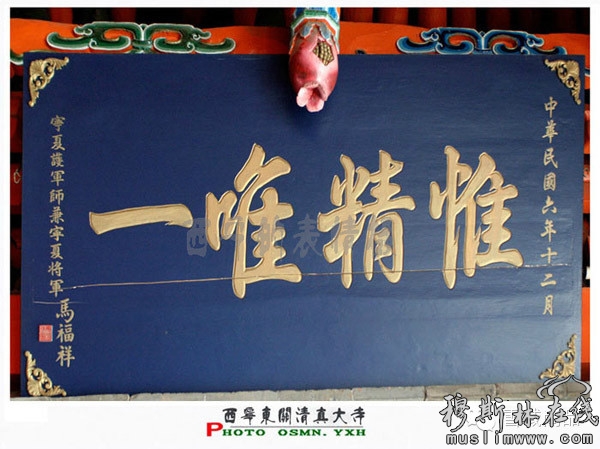 中華民國六年十二月
惟精唯一
寧夏護軍師兼寧夏将軍馬福祥
西寧東關清真大寺
PHOTO OSMN.YXH
穆斯林在线
muslimwww.com